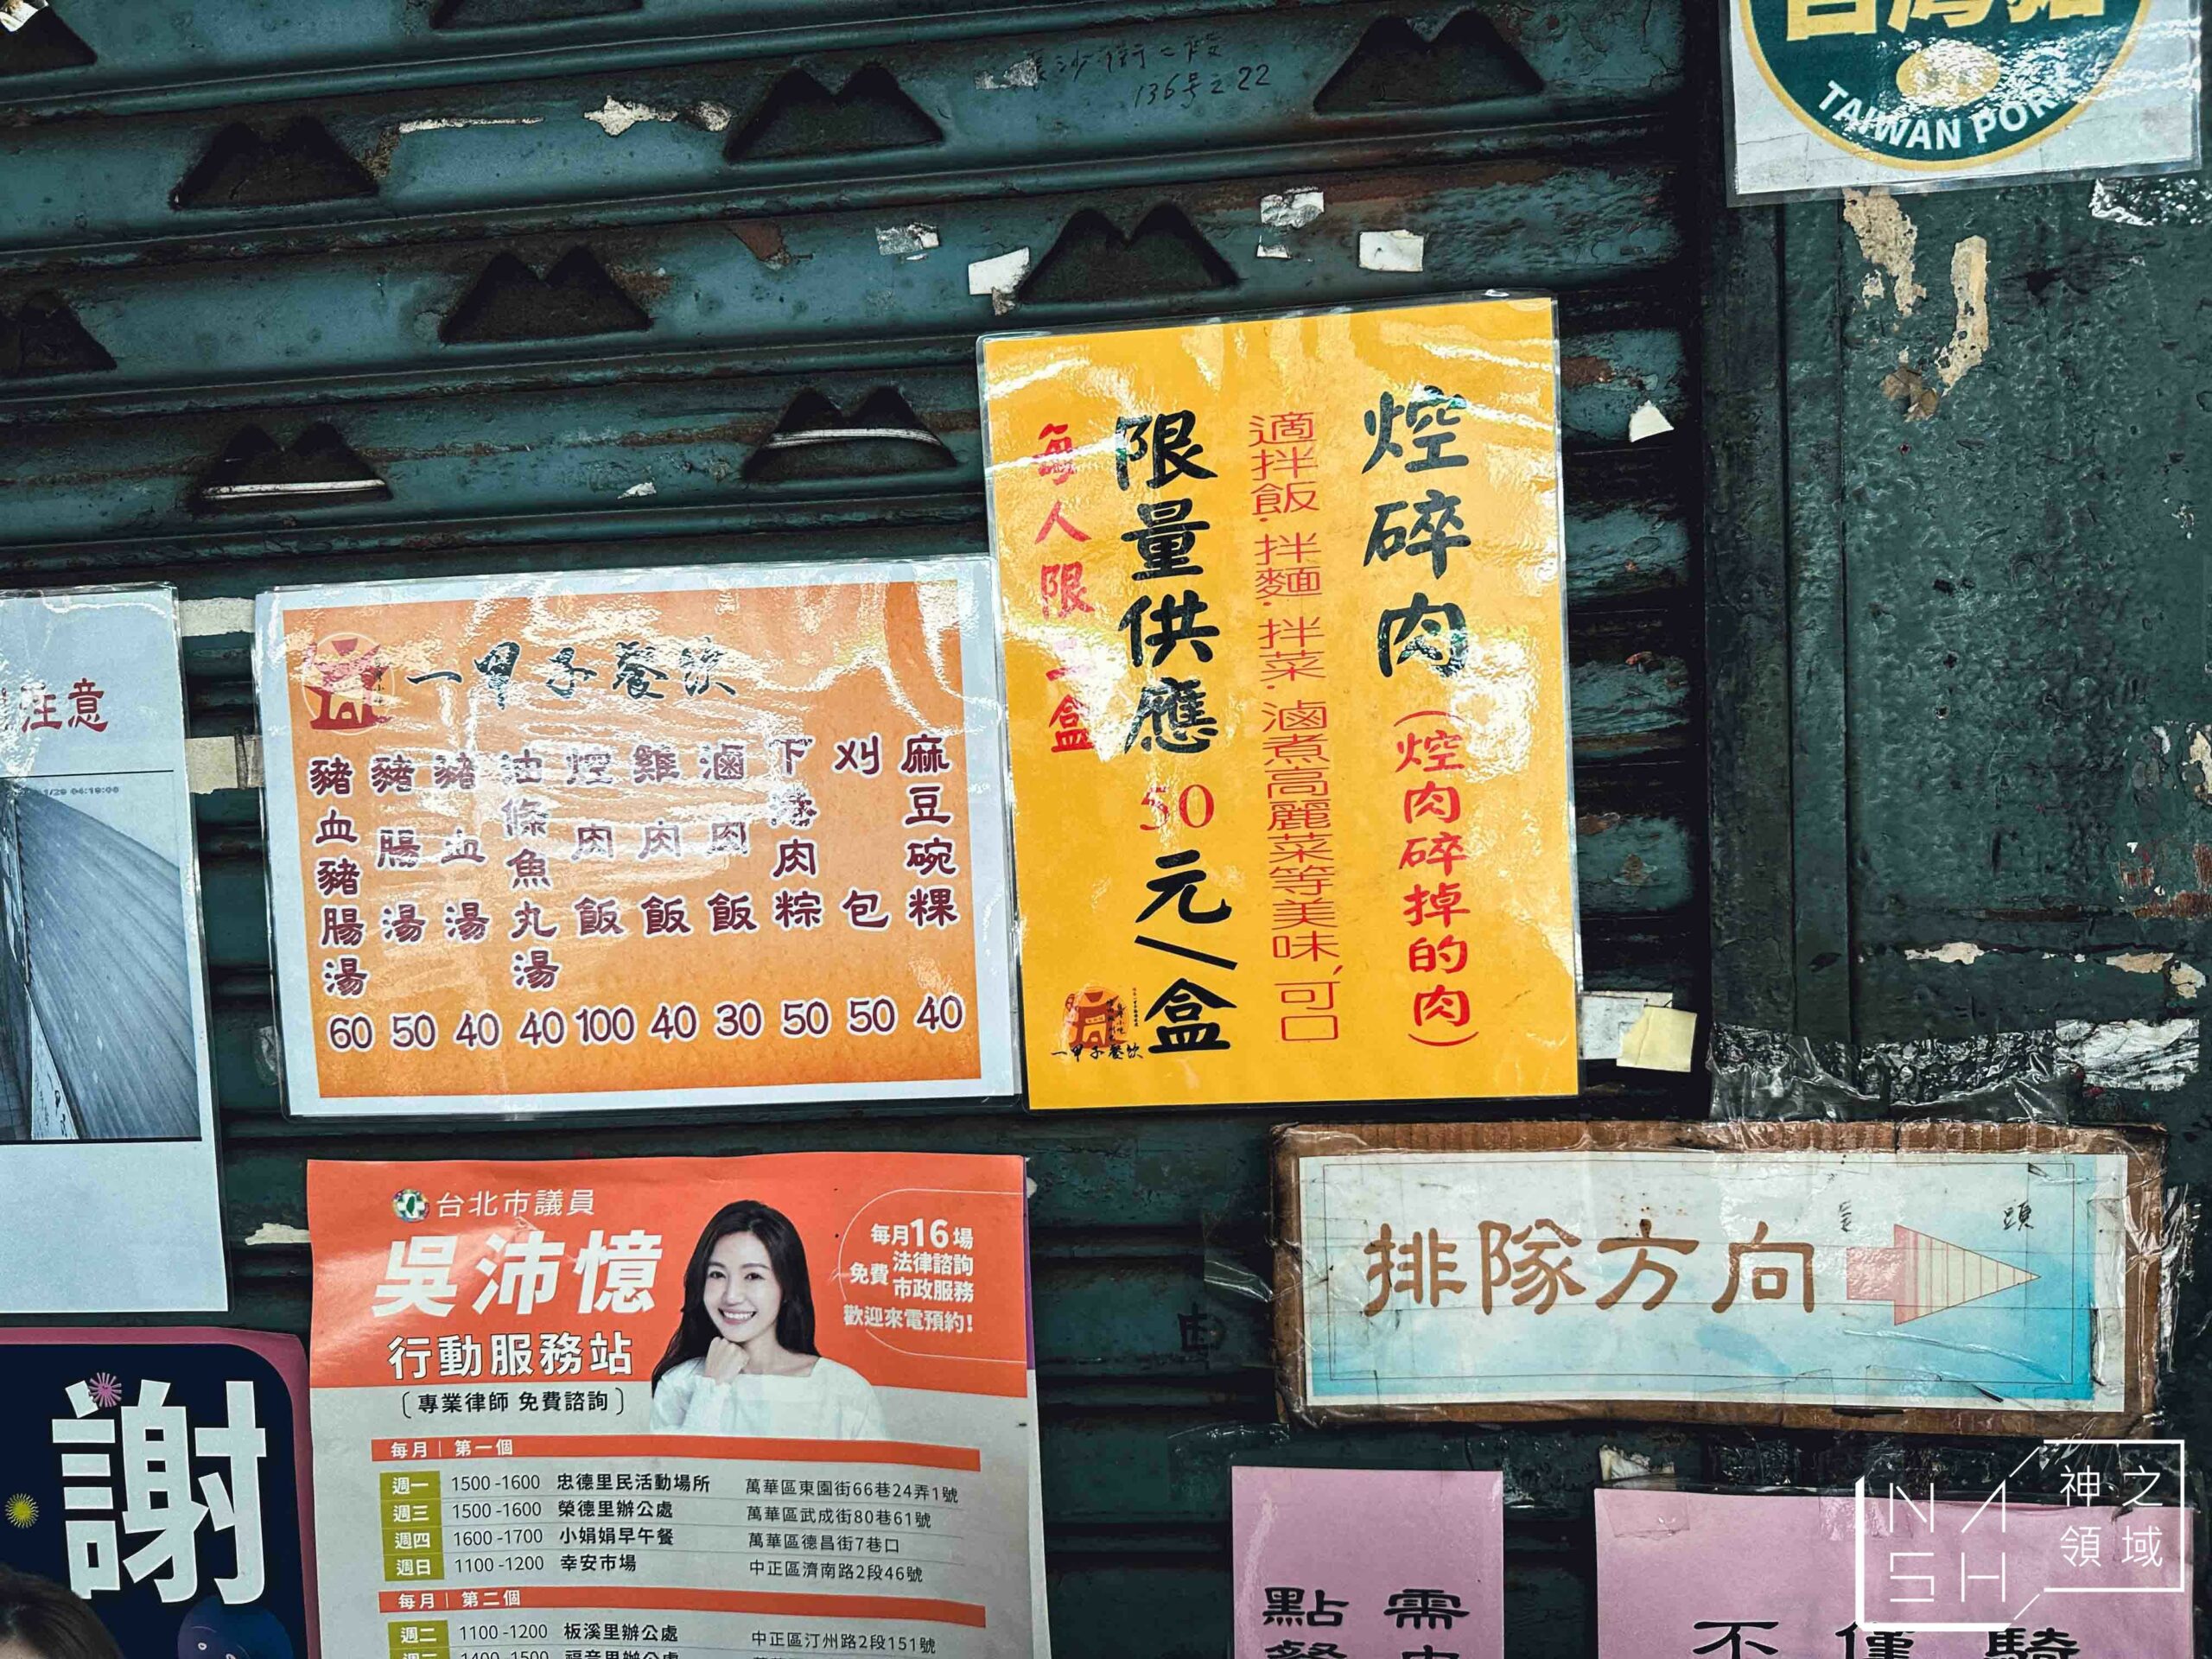 沙街二段
136号之22
TAIWAN PORK
焢碎肉
(焢肉碎掉的肉)
適拌飯.拌麵.拌菜.滷煮高麗菜等美味,可口
限量供應50元/盒
每人限二盒
一甲子餐飲
一甲子餐飲
麻豆碗粿 40
刈包 50
下港肉粽 50
滷肉飯 30
雞肉飯 40
焢肉飯 100
油條魚丸湯 40
豬血湯 40
豬腸湯 50
豬血豬腸湯 60
注意
謝
台北市議員
吳沛憶
行動服務站
〔專業律師 免費諮詢〕
每月16場
免費 法律諮詢 市政服務
歡迎來電預約!
每月 | 第一個
週一 1500-1600 忠德里民活動場所 萬華區東園街66巷24弄1號
週三 1500-1600 榮德里辦公處 萬華區武成街80巷61號
週四 1600-1700 小娟娟早午餐 萬華區德昌街7巷口
週日 1100-1200 幸安市場 中正區濟南路2段46號
每月 | 第二個
週二 1100-1200 板溪里辦公處 中正區汀州路2段151號
1400-1500 福音里辦公處
排隊方向
頭
需
點餐
不僅騎
NASH
神之領域